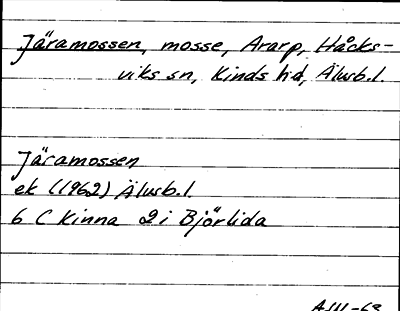 Järamossen, mosse, Ararp, Håcks-
viks sn, Kinds hd, Älvsb.l.
Järamossen
ek (1962) Älvsb.l.
6 C Kinna 2 i Björlida